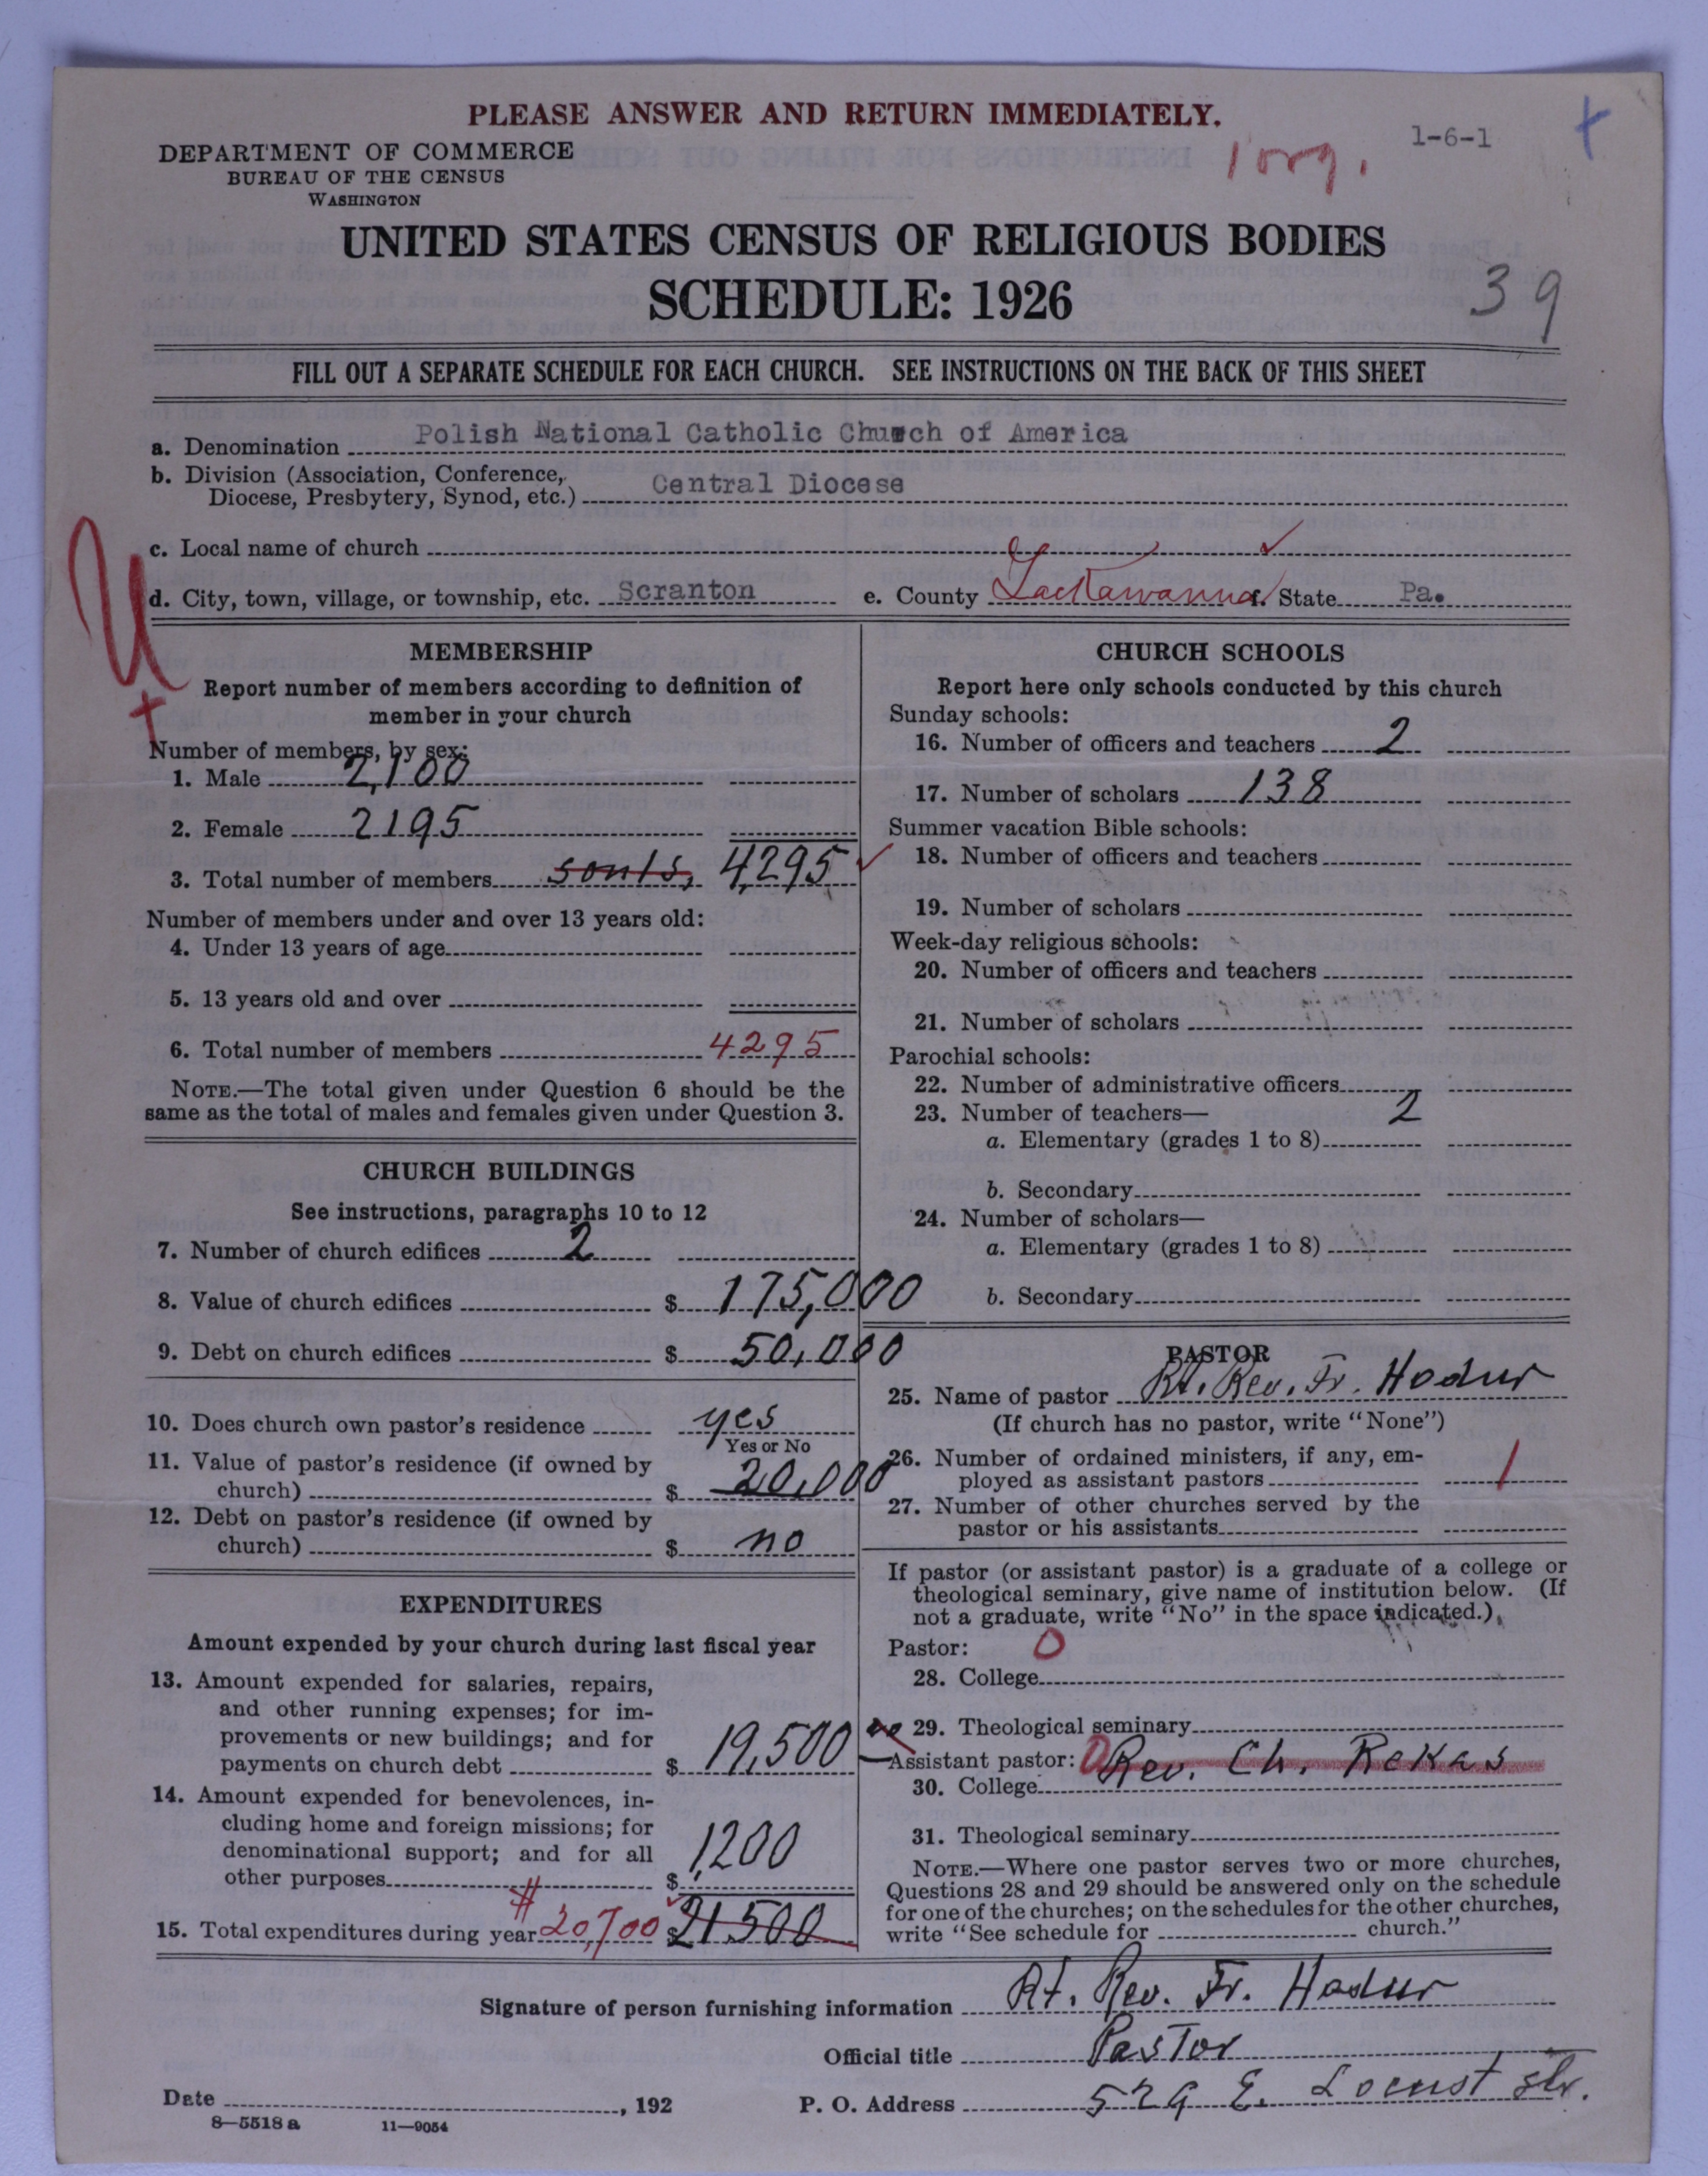 PLEASE ANSWER AND RETURN IMMEDIATELY.
DEPARTMENT OF COMMERCE
BUREAU OF THE CENSUS
WASHINGTON
1 org.
1-6-1
+
UNITED STATES CENSUS OF RELIGIOUS BODIES
SCHEDULE: 1926
39
FILL OUT A SEPARATE SCHEDULE FOR EACH CHURCH. SEE INSTRUCTIONS ON THE BACK OF THIS SHEET
a. Denomination Polish National Catholic Church of America
b. Division (Association, Conference,
Diocese, Presbytery, Synod, etc.) Central Diocese
c. Local name of church
d. City, town, village, or township, etc. Scranton e. County Lackawanna f. State Pa.
U
+
MEMBERSHIP
Report number of members according to definition of
member in your church
Number of members, by sex:
1. Male 2,100
2. Female 2195
3. Total number of members souls, 4,295
Number of members under and over 13 years old:
4. Under 13 years of age
5. 13 years old and over
6. Total number of members 4295
NOTE.—The total given under Question 6 should be the
same as the total of males and females given under Question 3.
CHURCH BUILDINGS
See instructions, paragraphs 10 to 12
7. Number of church edifices 2
8. Value of church edifices $ 175,000
9. Debt on church edifices $ 50,000
10. Does church own pastor's residence yes
Yes or No
11. Value of pastor's residence (if owned by
church) $ 20,000
12. Debt on pastor's residence (if owned by
church) $ no
EXPENDITURES
Amount expended by your church during last fiscal year
13. Amount expended for salaries, repairs,
and other running expenses; for im-
provements or new buildings; and for
payments on church debt $ 19,500
14. Amount expended for benevolences, in-
cluding home and foreign missions; for
denominational support; and for all
other purposes $ 1,200
15. Total expenditures during year # 20,700 $ 21.500
CHURCH SCHOOLS
Report here only schools conducted by this church
Sunday schools:
16. Number of officers and teachers 2
17. Number of scholars 138
Summer vacation Bible schools:
18. Number of officers and teachers
19. Number of scholars
Week-day religious schools:
20. Number of officers and teachers
21. Number of scholars
Parochial schools:
22. Number of administrative officers
23. Number of teachers— 2
a. Elementary (grades 1 to 8)
b. Secondary
24. Number of scholars—
a. Elementary (grades 1 to 8)
b. Secondary
PASTOR
25. Name of pastor Rt. Rev. Fr. Hodur
(If church has no pastor, write "None")
26. Number of ordained ministers, if any, em-
ployed as assistant pastors 1
27. Number of other churches served by the
pastor or his assistants
If pastor (or assistant pastor) is a graduate of a college or
theological seminary, give name of institution below. (If
not a graduate, write "No" in the space indicated.)
Pastor: 0
28. College
29. Theological seminary
Assistant pastor: 0 Rev. Ch. Rekas
30. College
31. Theological seminary
NOTE.—Where one pastor serves two or more churches,
Questions 28 and 29 should be answered only on the schedule
for one of the churches; on the schedules for the other churches,
write "See schedule for church."
Signature of person furnishing information Rt. Rev. Fr. Hodur
Official title Pastor
Date , 192 P. O. Address 529 E. Locust str.
8—5518 a 11—9054